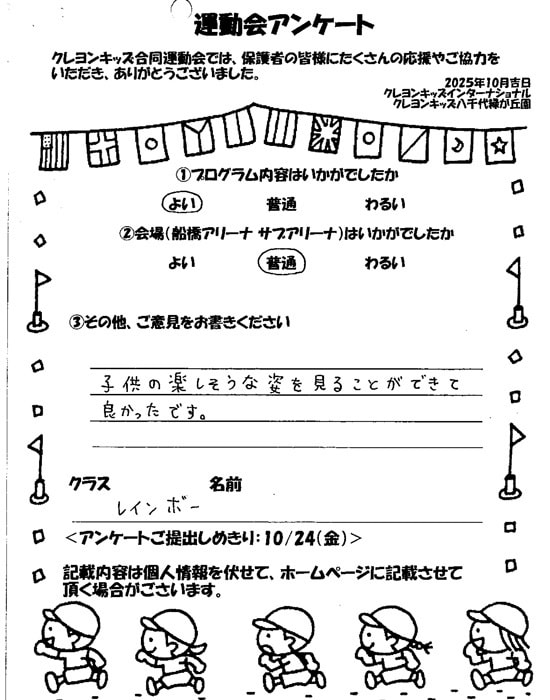 運動会アンケート
クレヨンキッズ合同運動会では、保護者の皆様にたくさんの応援やご協力を
いただき、ありがとうございました。
2025年10月吉日
クレヨンキッズインターナショナル
クレヨンキッズ八千代緑が丘園
①プログラム内容はいかがでしたか
よい 普通 わるい
②会場(船橋アリーナ サブアリーナ)はいかがでしたか
よい 普通 わるい
③その他、ご意見をお書きください
子供の楽しそうな姿を見ることができて
良かったです。
クラス 名前
レインボー
<アンケートご提出しめきり:10/24(金)>
記載内容は個人情報を伏せて、ホームページに記載させて
頂く場合がございます。